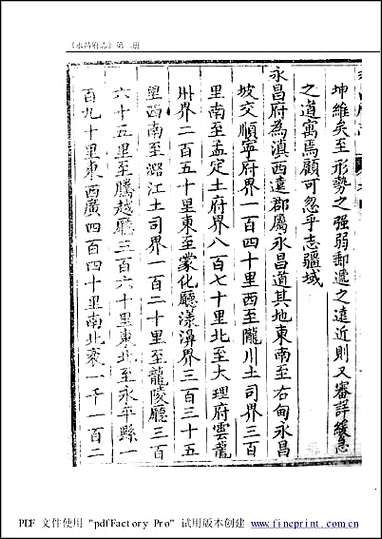 《永昌府志》第一册
坤維矣至形勢之强弱郵遞之遠近則又審詳緩急
之道寓焉顧可忽乎志疆域
永昌府為滇西遠郡屬永昌道其地東南至右甸永昌
坡交順寧府界一百四十里西至隴川土司界三百
里南至孟定土府界八百七十里北至大理府雲龍
州界二百五十里東至蒙化廳漾濞界三百三十五
里西南至潞江土司界一百二十里至龍陵廳三百
六十五里至騰越廳三百六十里東北至永平縣一
百九十里東西廣四百四十里南北袤一千一百二
PDF 文件使用 "pdfFactory Pro" 试用版本创建 www.fineprint.com.cn